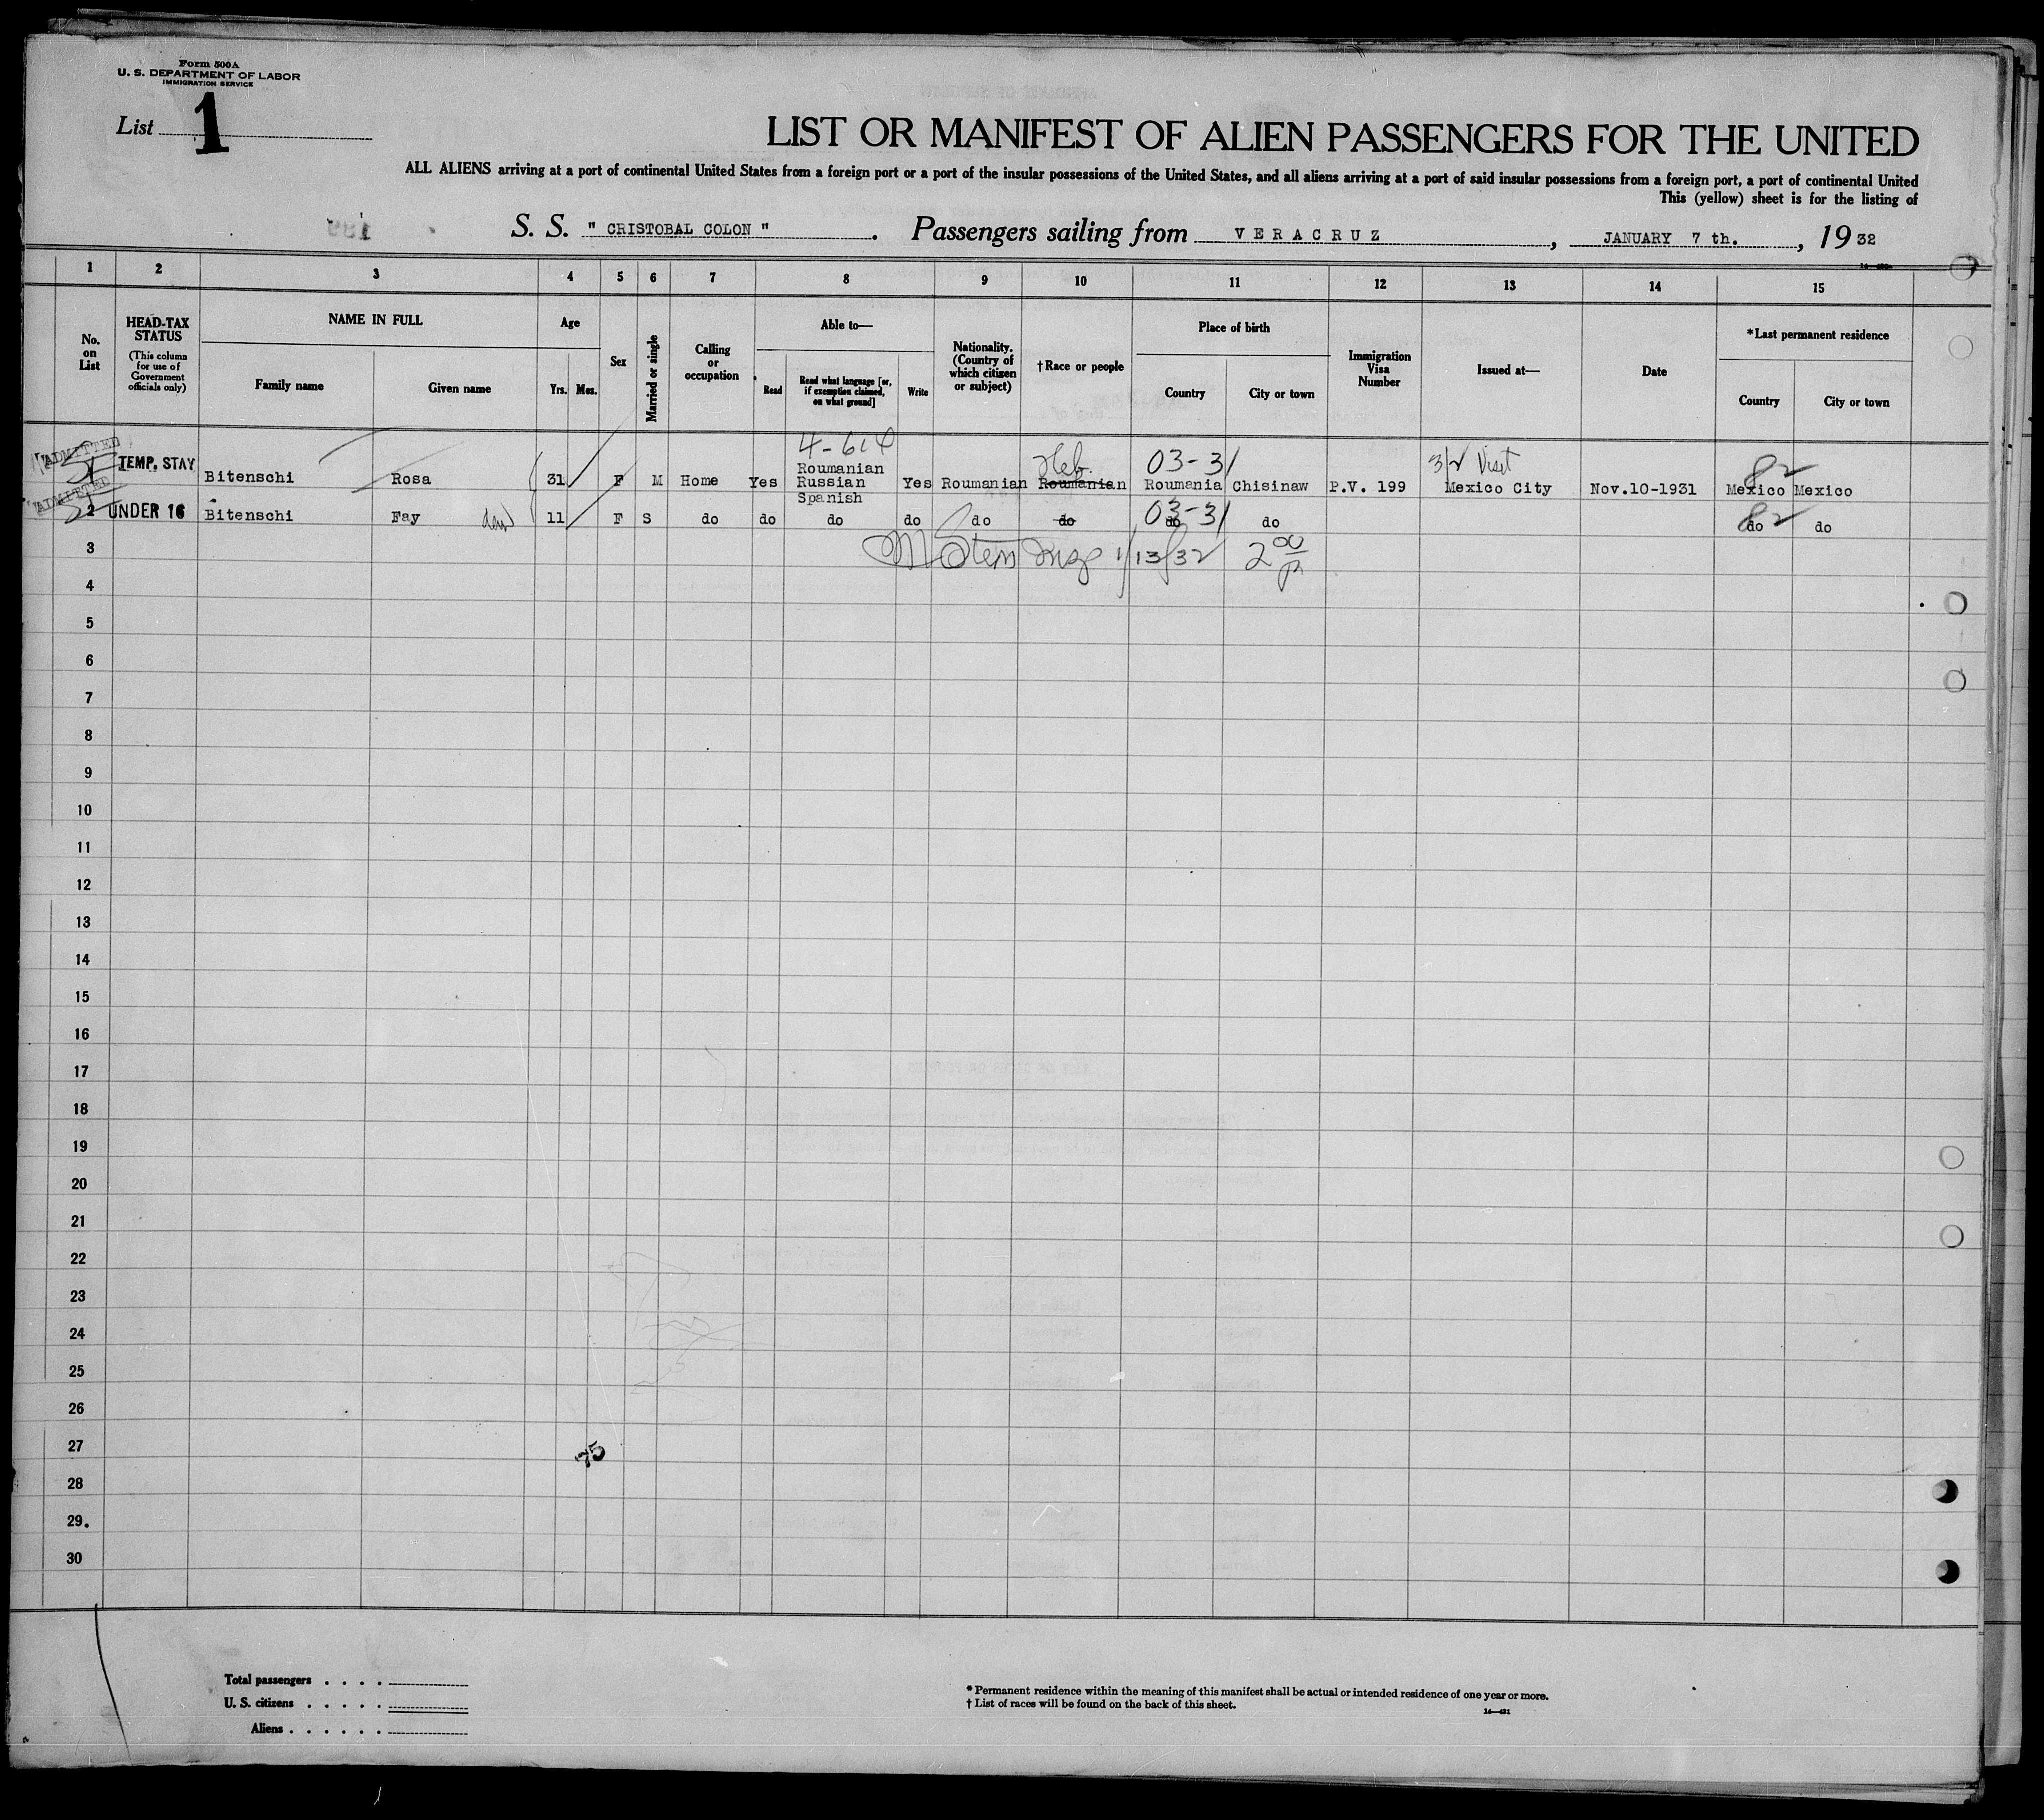 Form 500A
U. S. DEPARTMENT OF LABOR
IMMIGRATION SERVICE
List 1
LIST OR MANIFEST OF ALIEN PASSENGERS FOR THE UNITED
ALL ALIENS arriving at a port of continental United States from a foreign port or a port of the insular possessions of the United States, and all aliens arriving at a port of said insular possessions from a foreign port, a port of continental United
This (yellow) sheet is for the listing of
S. S. " CRISTOBAL COLON ". Passengers sailing from VERACRUZ, JANUARY 7 th., 19 32
1 2 3 4 5 6 7 8 9 10 11 12 13 14 15
No. on List
HEAD-TAX STATUS
(This column for use of Government officials only)
NAME IN FULL
Family name Given name
Age
Yrs. Mos.
Sex
Married or single
Calling or occupation
Able to—
Read
Read what language [or, if exemption claimed, on what ground]
Write
Nationality. (Country of which citizen or subject)
†Race or people
Place of birth
Country City or town
Immigration Visa Number
Issued at—
Date
*Last permanent residence
Country City or town
ADMITTED
4-614
Heb. 03-31 3/2 Visit 82
TEMP. STAY Bitenschi Rosa 31 F M Home Yes Roumanian Russian Spanish Yes Roumanian Roumanian Roumania Chisinaw P.V. 199 Mexico City Nov.10-1931 Mexico Mexico
ADMITTED
03-31 82
2 UNDER 16 Bitenschi Fay dau 11 F S do do do do do do do do do do
3
M Stern Insp 1/13/32 2 00
4
5
6
7
8
9
10
11
12
13
14
15
16
17
18
19
20
21
22
23
24
25
26
27
75
28
29.
30
Total passengers . . . .
U. S. citizens . . . . .
Aliens . . . . . .
* Permanent residence within the meaning of this manifest shall be actual or intended residence of one year or more.
† List of races will be found on the back of this sheet.
14—431